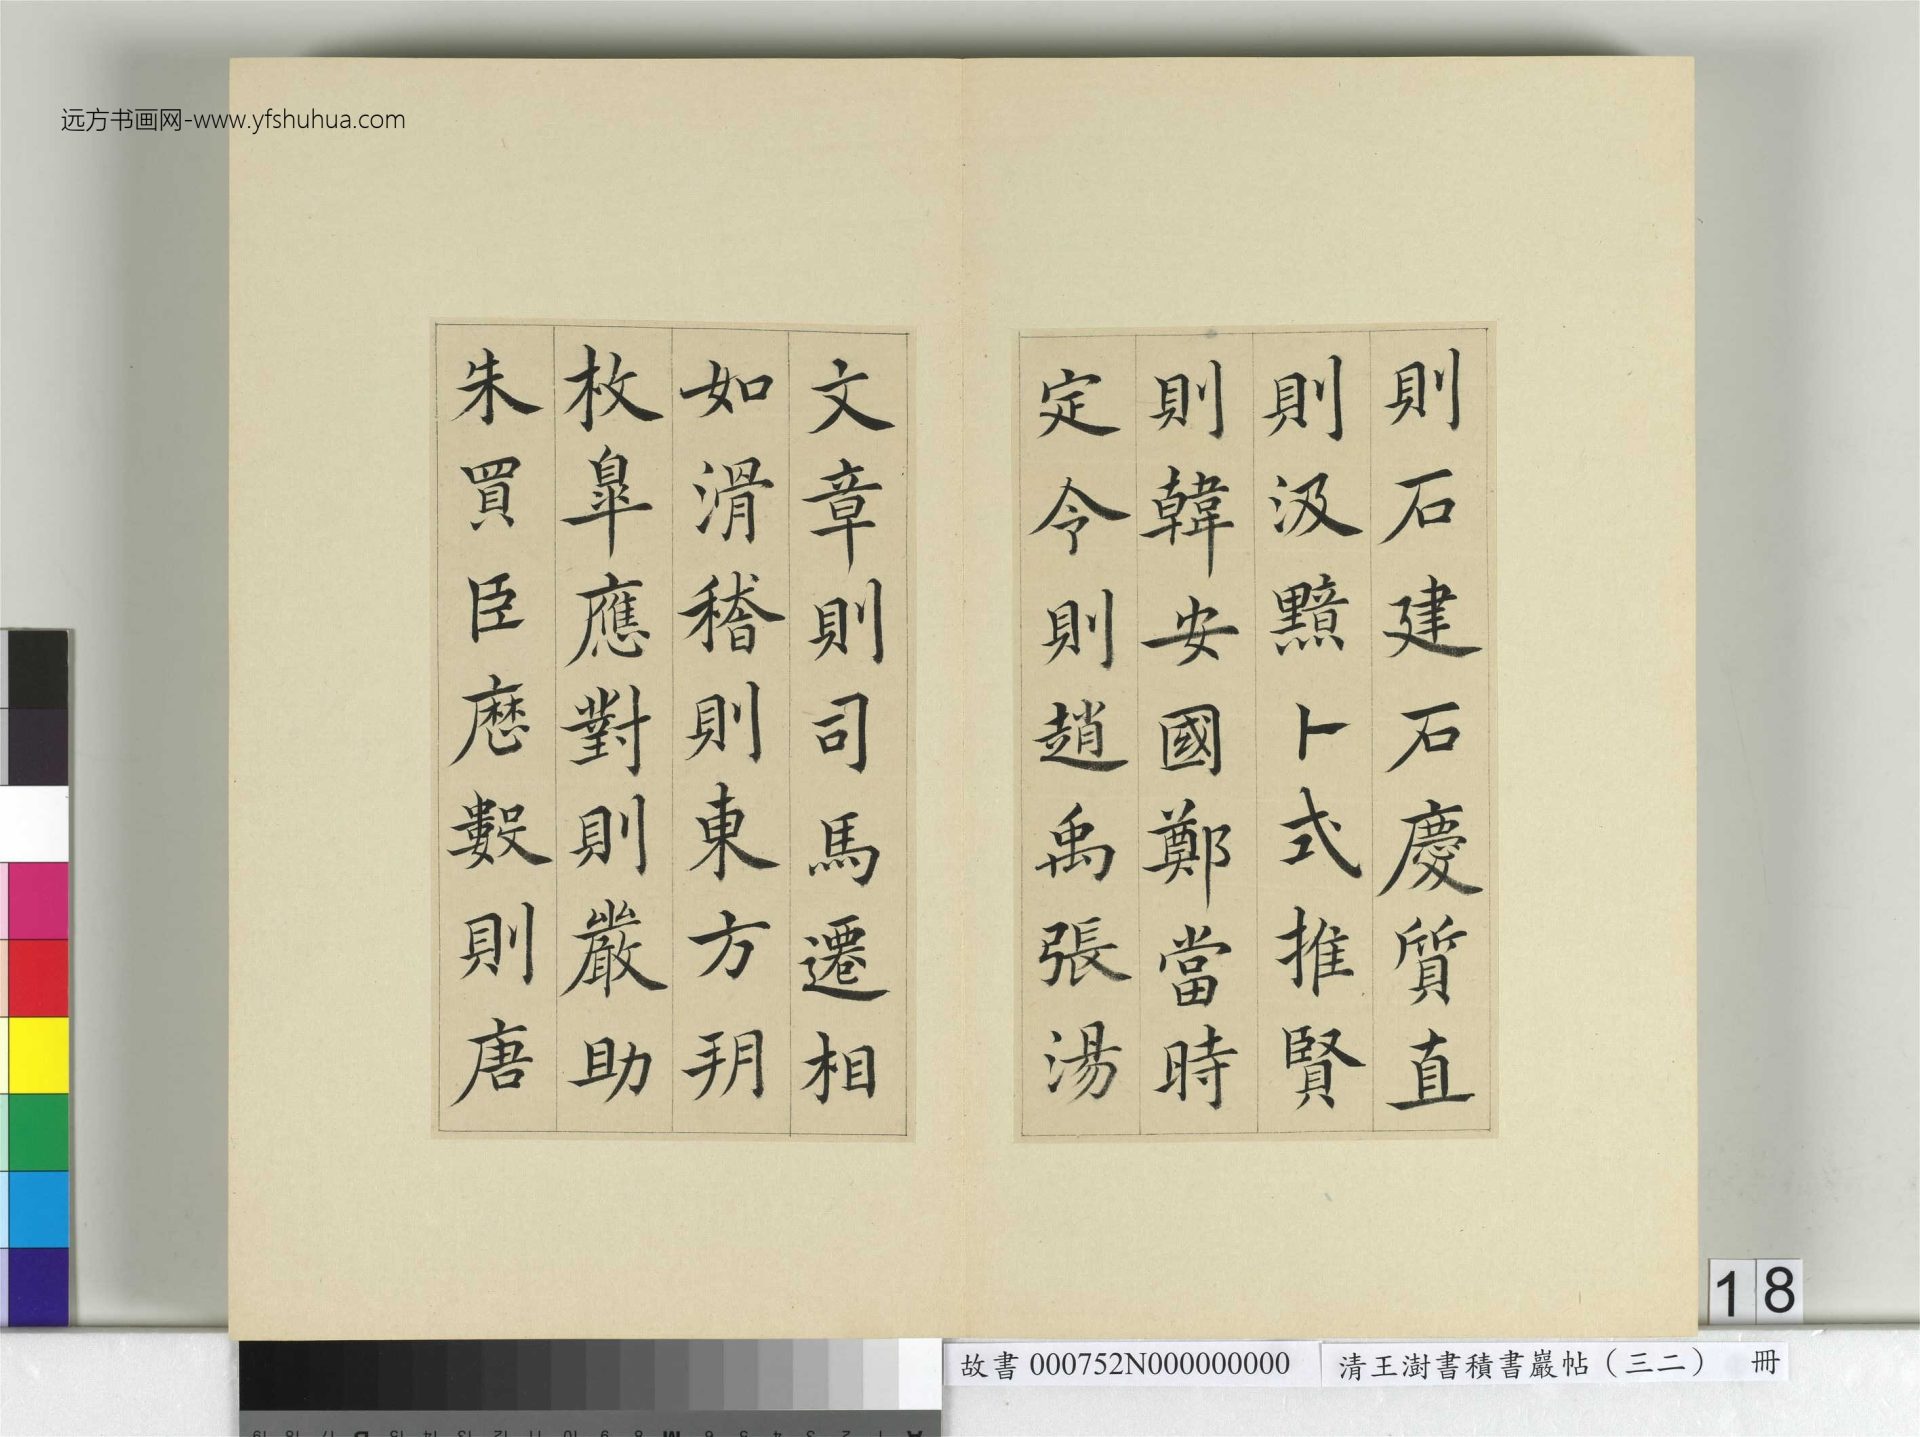 远方书画网-www.yfshuhua.com
則石建石慶質直
則汲黯卜式推賢
則韓安國鄭當時
定令則趙禹張湯
文章則司馬遷相
如滑稽則東方朔
枚皋應對則嚴助
朱買臣歷數則唐
18
故書 000752N000000000
清王澍書積書巖帖(三二) 冊